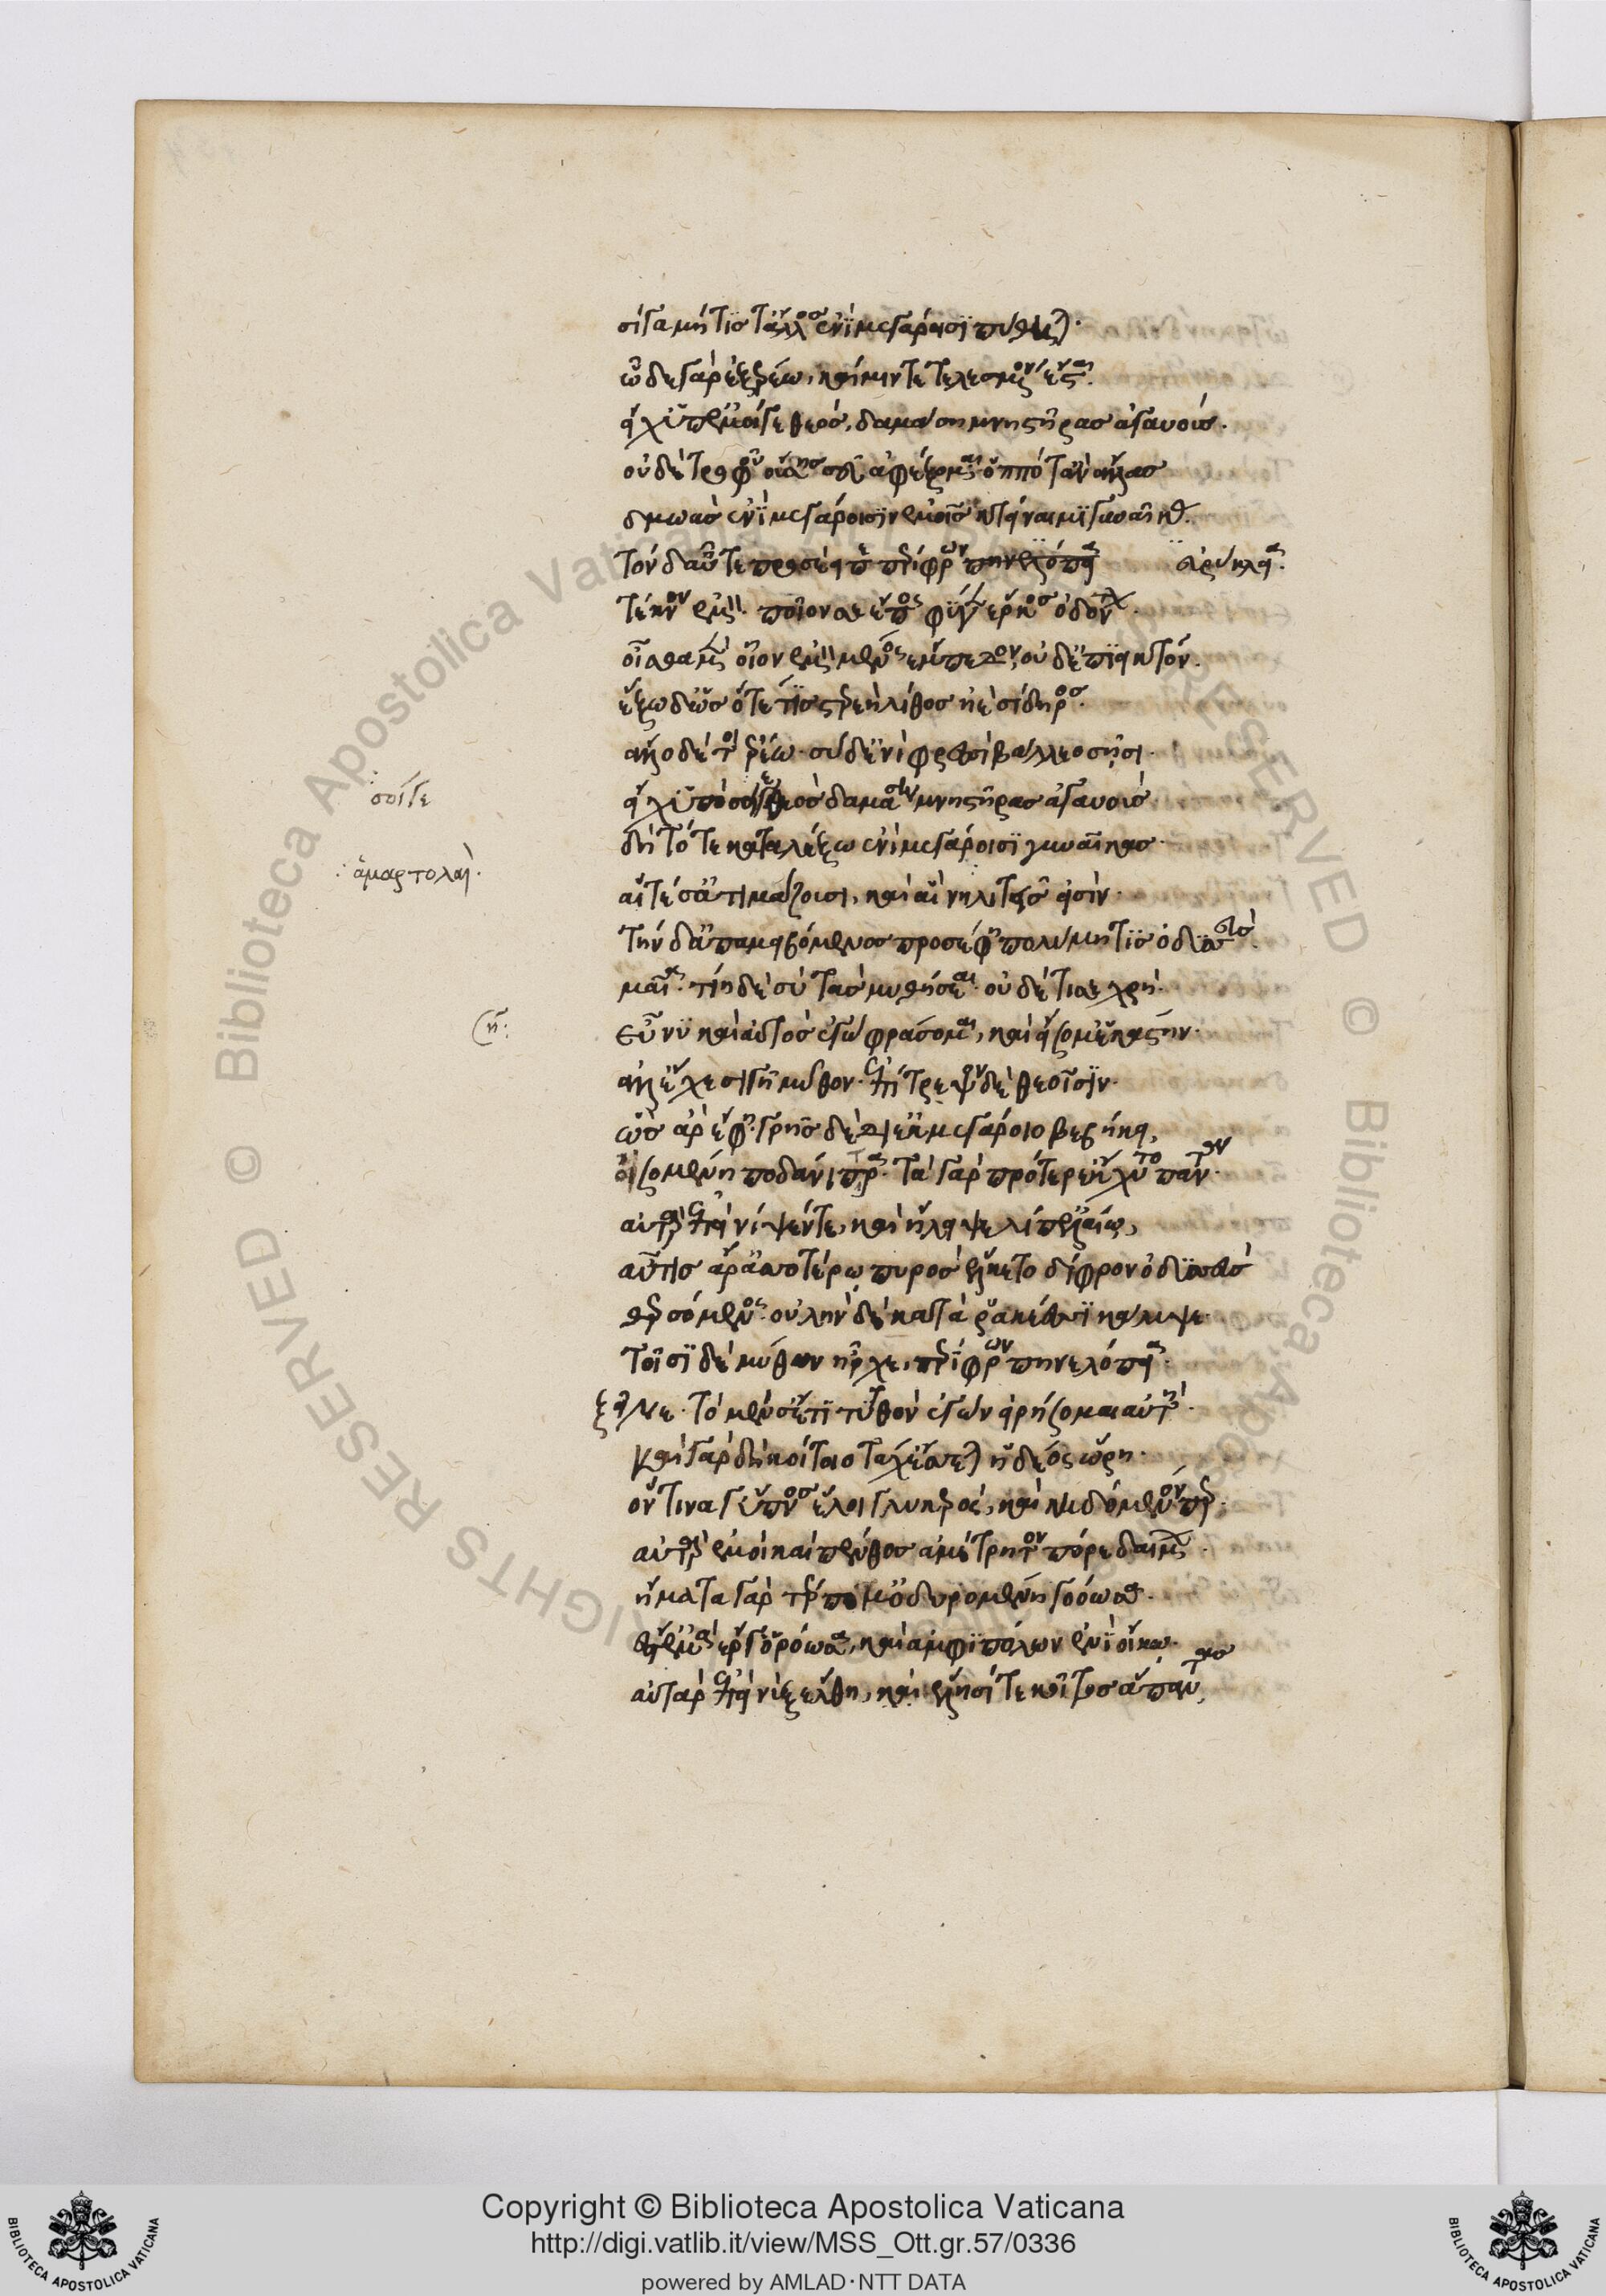 σίγα μή τίς τ' ἄλλος ἐνὶ μεγάροισι πύθηται.
ὧδε γὰρ ἐξερέω, καὶ μὴν τετελεσμένον ἔσται.
εἴ χ' ὑπ' ἐμοί γε θεὸς δαμάσῃ μνηστῆρας ἀγαυούς.
οὐδὲ τροφοῦ οὔσης σεῦ ἀφέξομαι ὁππότ' ἂν ἄλλας
δμωὰς ἐνὶ μεγάροισιν ἐμοῖς κτείναιμι γυναῖκας.
τὸν δ' αὖτε προσέειπε περίφρων πηνελόπεια εὐρύκλεια.
τέκνον ἐμὸν ποῖόν σε ἔπος φύγεν ἕρκος ὀδόντων.
οἶσθα μὲν οἷον ἐμὸν μένος ἔμπεδον, οὐδ' ἐπιεικτόν.
ἕξω δ' ὡς ὅτε τίς στερεὴ λίθος ἠὲ σίδηρος.
ἄλλο δέ τοι ἐρέω. σὺ δ' ἐνὶ φρεσὶ βάλλεο σῇσι.
:σοίγε
εἴ χ' ὑπὸ σοί γε θεὸς δαμάσῃ μνηστῆρας ἀγαυοὺς
δὴ τότε καταλέξω ἐνὶ μεγάροισι γυναῖκας.
:ἁμαρτολαὶ.
αἵ τέ σ' ἀτιμάζουσι, καὶ αἳ νηλίτεις εἰσίν.
τὴν δ' ἀπαμειβόμενος προσέφη πολύμητις ὀδυσσεύς.
μαῖα. τίη δὲ σὺ τὰς μυθήσεαι. οὐδέ τί σε χρή.
εὖ νυ καὶ αὐτὸς ἐγὼ φράσομαι, καὶ εἴσομ' ἑκάστην.
ἀλλ' ἔχε σιγῇ μῦθον. ἐπίτρεψον δὲ θεοῖσιν.
ὣς ἄρ' ἔφη. γρηῢς δὲ διὲκ μεγάροιο βεβήκει,
οἰσομένη ποδάνιπτρα. τὰ γὰρ πρότερ' ἔκχυτο πάντων.
αὐτὰρ ἐπεὶ νίψεν τε, καὶ ἤλειψε λίπ' ἐλαίῳ,
αὖτις ἄρ' ἀσσοτέρω πυρὸς ἕλκετο δίφρον ὀδυσσεὺς
θερσόμενος. οὐλὴν δὲ κατὰ ῥακέεσσι κάλυψε.
τοῖσι δὲ μύθων ἦρχε, περίφρων πηνελόπεια.
ξεῖνε. τὸ μέν σ' ἔτι τυτθὸν ἐγὼν εἰρήσομαι αὐτή.
καὶ γὰρ δὴ κοίτοιο τάχ' ἔσσεται ἡδέος ὥρη.
ὅντινά γ' ὕπνος ἕλοι γλυκερὸς, καὶ κηδόμενόν περ.
αὐτὰρ ἐμοὶ καὶ πένθος ἀμέτρητον πόρε δαίμων.
ἤματα γὰρ τέρπομ' ὀδυρομένη γοόωσα.
ἔς τ' ἐμὰ ἔργ' ὁρόωσα, καὶ ἀμφιπόλων ἐνὶ οἴκῳ.
αὐτὰρ ἐπεὶ νὺξ ἔλθῃ, καὶ ἕλῃσί τε κοῖτος ἅπαντας
Copyright © Biblioteca Apostolica Vaticana
http://digi.vatlib.it/view/MSS_Ott.gr.57/0336
powered by AMLAD·NTT DATA